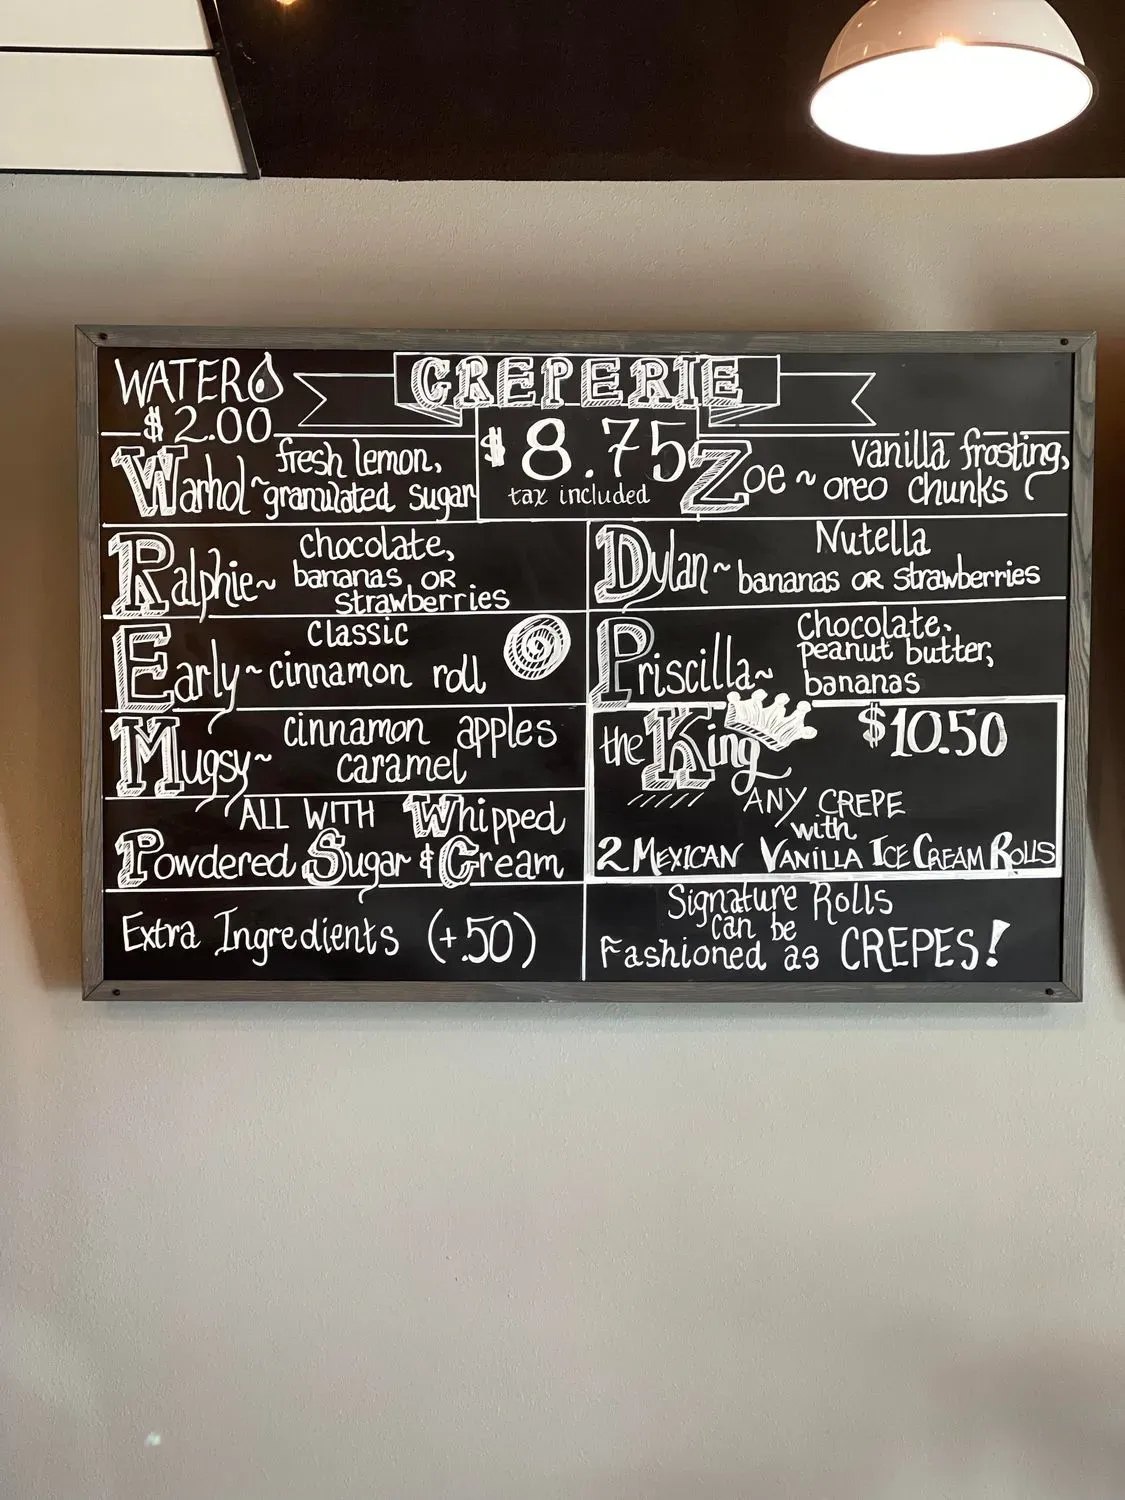 WATER
$ 2.00
CREPERIE
$8.75
tax included
Warhol ~ fresh lemon,
granulated sugar
Zoe ~ vanilla frosting,
oreo chunks
Ralphie ~ chocolate,
bananas OR
strawberries
Dylan ~ Nutella
bananas OR strawberries
Early ~ Classic
cinnamon roll
Priscilla ~ Chocolate,
peanut butter,
bananas
Mugsy ~ cinnamon apples
caramel
the King $10.50
ANY CREPE
with
2 MEXICAN VANILLA ICE CREAM ROLLS
ALL WITH Whipped
Powdered Sugar & Cream
Extra Ingredients (+.50)
Signature Rolls
can be
Fashioned as CREPES!